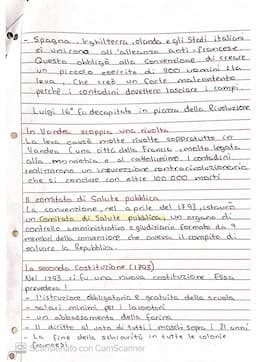 - Spagna, Inghilterra, olanda e gli Stati italiani
si unirono all'alleanza anti-francese
Questo obbligò alla Convenzione di creare
un piccolo esercito di 300 uomini la
leva, che creò un forte malcontento
perchè i contadini dovettero lasciare i campi.
Luigi 16° fu decapitato in piazza della Rivoluzione
In Vandea scoppia una rivolta
La leva causò molte rivolte soprattutto in
Vandea (una città della Francia, molto legata
alla monarchia e al cattolicesimo. I contadini
realizzarono un insurrezione controrivoluzionaria
che si concluse con oltre 100.000 morti
Il comitato di Salute pubblica
La convenzione, nel aprile del 1793, instaurò
un Comitato di Salute pubblica, un organo di
controllo amministrativo e giudiziario formato da 9
membri della convenzione che aveva il compito di
salvare la Repubblica.
La seconda Costituzione (1793)
Nel 1793 ci fu una nuova costituzione. Essa
prevedeva:
- l'istruzione obbligatoria e gratuita della scuola
- salari minimi per i lavoratori
- un abbassamento della farina
- Il diritto al voto di tutti i maschi sopra i 21 anni
- La fine della schiavitù in tutte le colonie
francesi
Scansionato con CamScanner